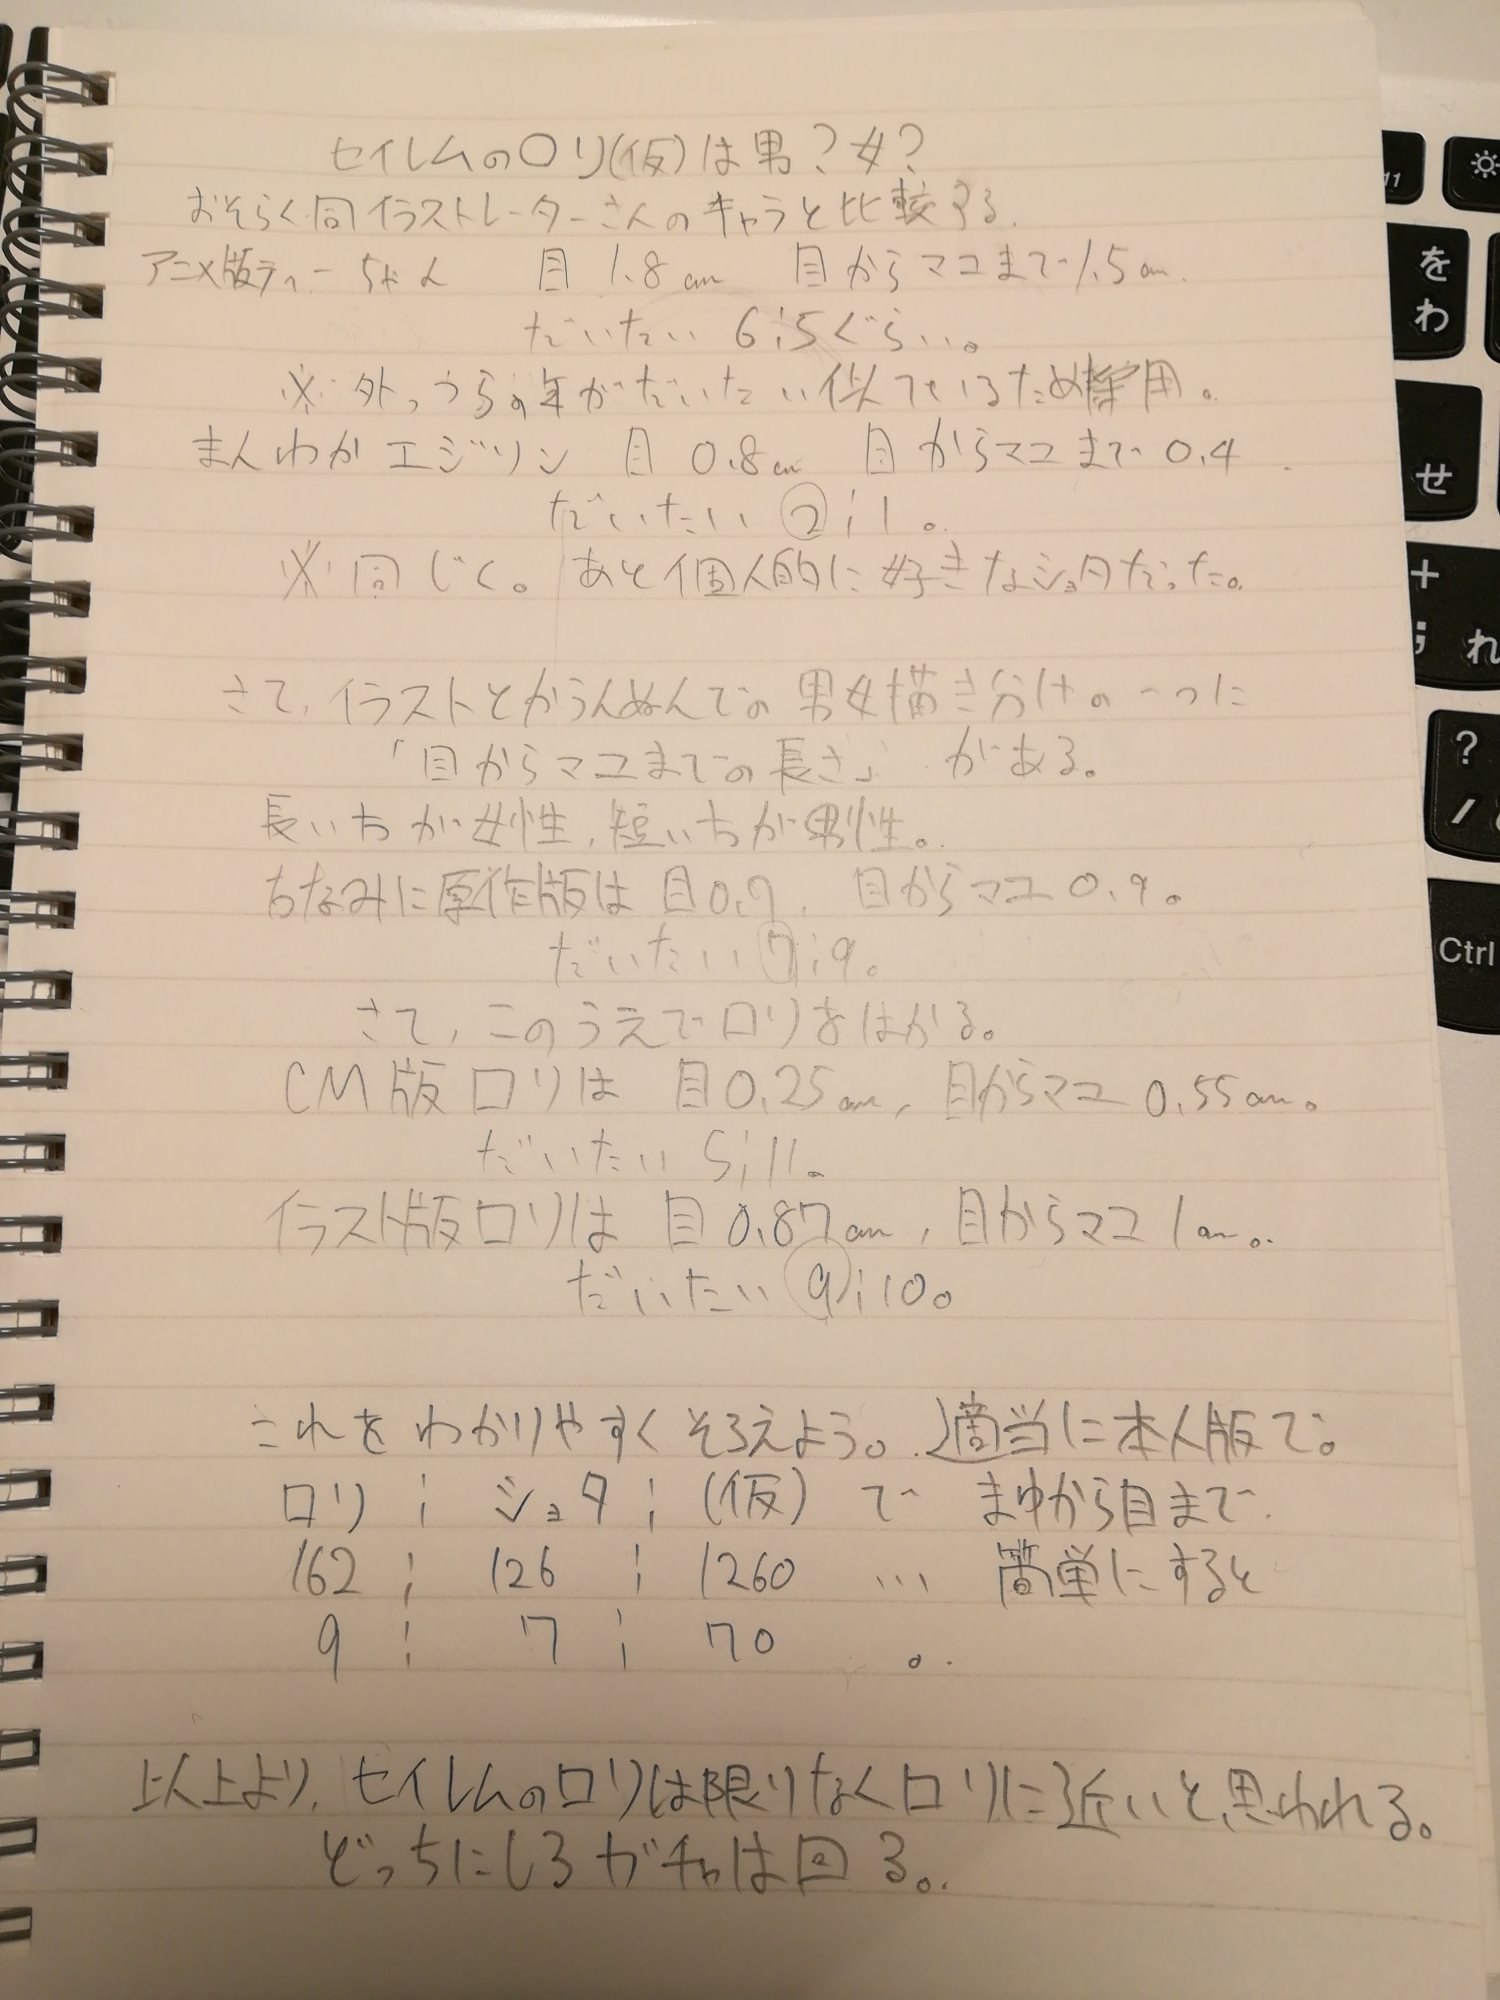 セイレムのロリ(仮)は男?女?
おそらく同イラストレーターさんのキャラと比較する.
アニメ版ティーちゃん 目 1.8cm 目からマユまで1.5cm.
だいたい 6:5ぐらい。
※外っつらの年がだいたい似ているため採用。
まんわかエジソン 目 0.8cm 目からマユまで 0.4
だいたい 2:1。
※同じく。あと個人的に好きなショタだった。
さて,イラストとかうんぬんでの男女描き分けの一つに
「目からマユまでの長さ」がある。
長い方が女性,短い方が男性。
ちなみに原作版は 目0.7, 目からマユ0.9。
だいたい 7:9。
さて,このうえでロリをはかる。
CM版ロリは 目0.25cm, 目からマユ 0.55cm。
だいたい 5:11。
イラスト版ロリは 目 0.87cm, 目からマユ 1cm。
だいたい 9:10。
これをわかりやすくそろえよう。適当に本人版で。
ロリ : ショタ : (仮) で まゆから目まで.
162 : 126 : 1260 … 簡単にすると
9 : 7 : 70 。
以上より,セイレムのロリは限りなくロリに近いと思われる。
どっちにしろガチャは回る。
11
を
わ
せ
+
; れ
?
/
Ctrl